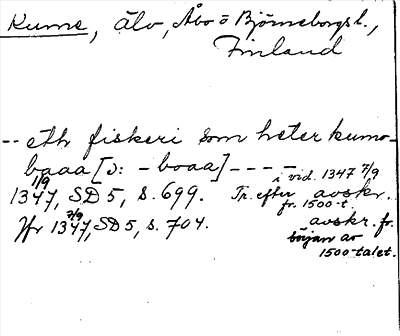 Kume, älv, Åbo o Björneborgs l.,
Finland
-- eth fiskeri som heter kumo-
baaa [ɔ: -boaa] ----
i vid. 1347 7/9
1347 1/9, SD 5, s. 699. Tr. efter avskr.
fr. 1500-t.
Jfr 1347 7/9, SD 5, s. 704. avskr. fr.
början av
1500-talet.